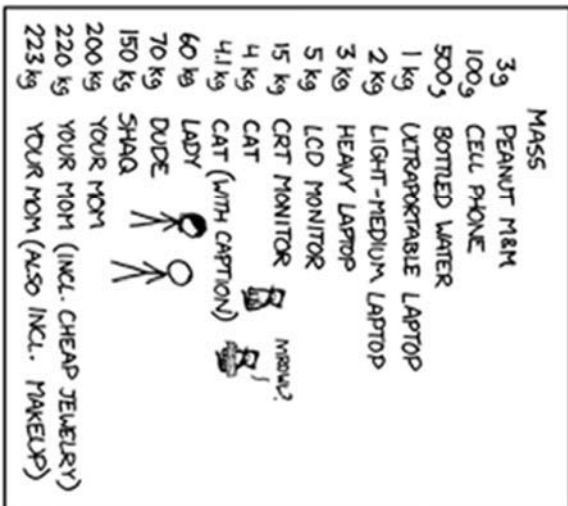 MASS
3g PEANUT M&M
100g CELL PHONE
500g BOTTLED WATER
1 kg ULTRAPORTABLE LAPTOP
2 kg LIGHT-MEDIUM LAPTOP
3 kg HEAVY LAPTOP
5 kg LCD MONITOR
15 kg CRT MONITOR
4 kg CAT
4.1 kg CAT (WITH CAPTION)
MROWL?
60 kg LADY
70 kg DUDE
150 kg SHAQ
200 kg YOUR MOM
220 kg YOUR MOM (INCL. CHEAP JEWELRY)
223 kg YOUR MOM (ALSO INCL. MAKEUP)